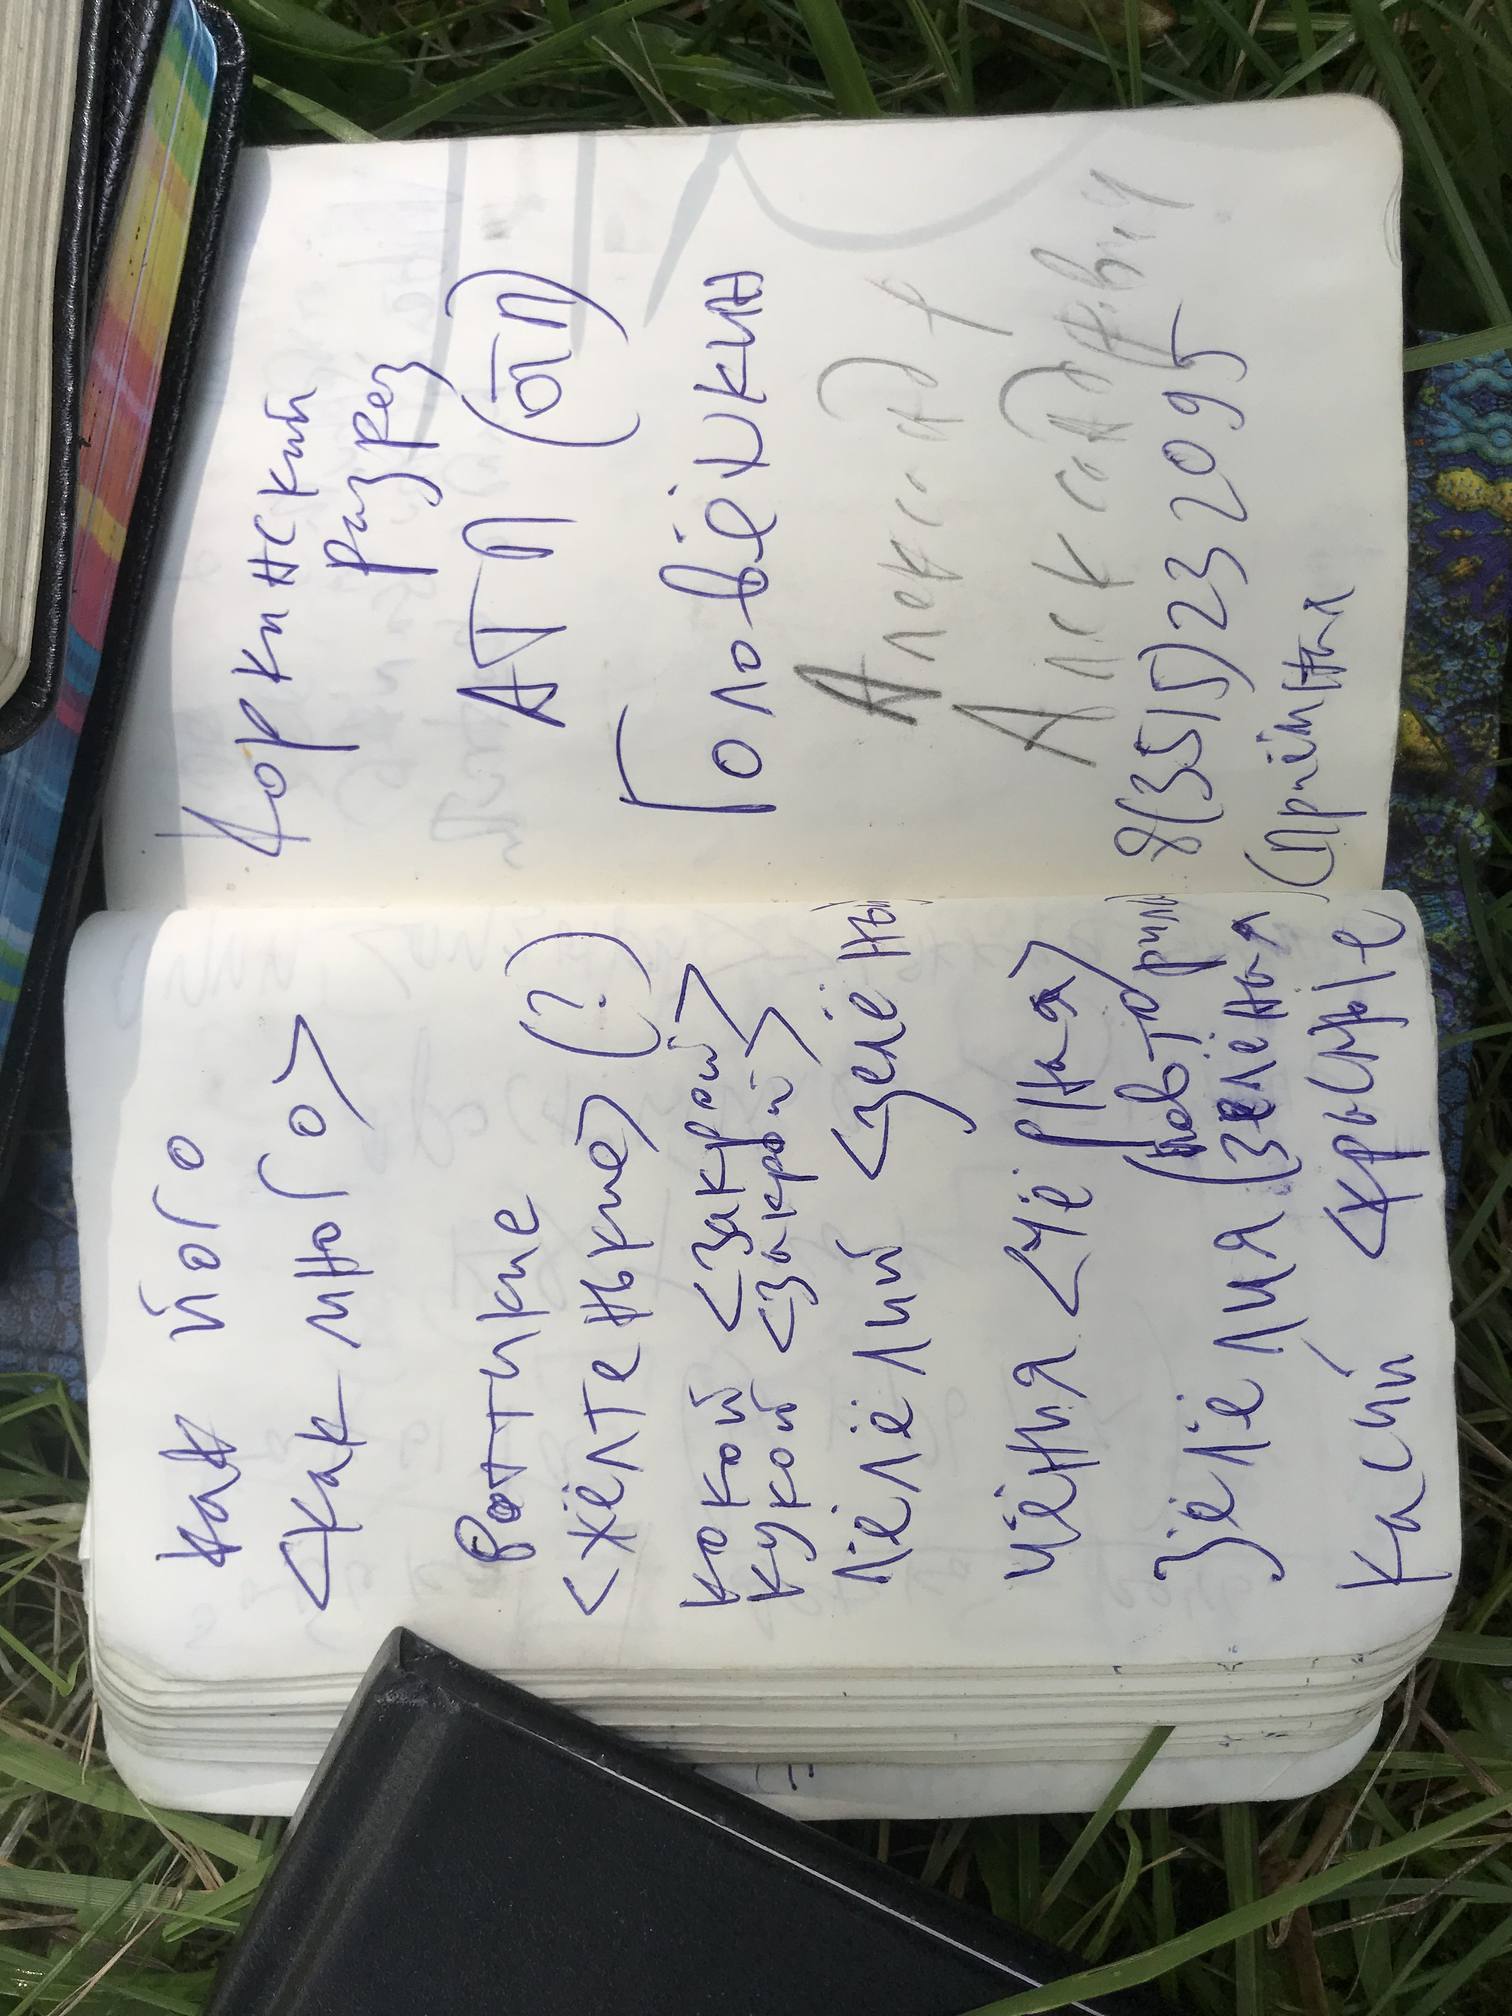 как його
<как много>
вотики
<жёлтенькие> (?)
кокой <закрой>
кукой <закрой>
лёлёлий <зелёный
чёния <чёрная>
зелёлия (повторила
(зелёная)
касий <красные
Коркинский
разрез
АТП (бп)
Головёшкин
Александр
Александрович
8(35151)232095
(Приёмная